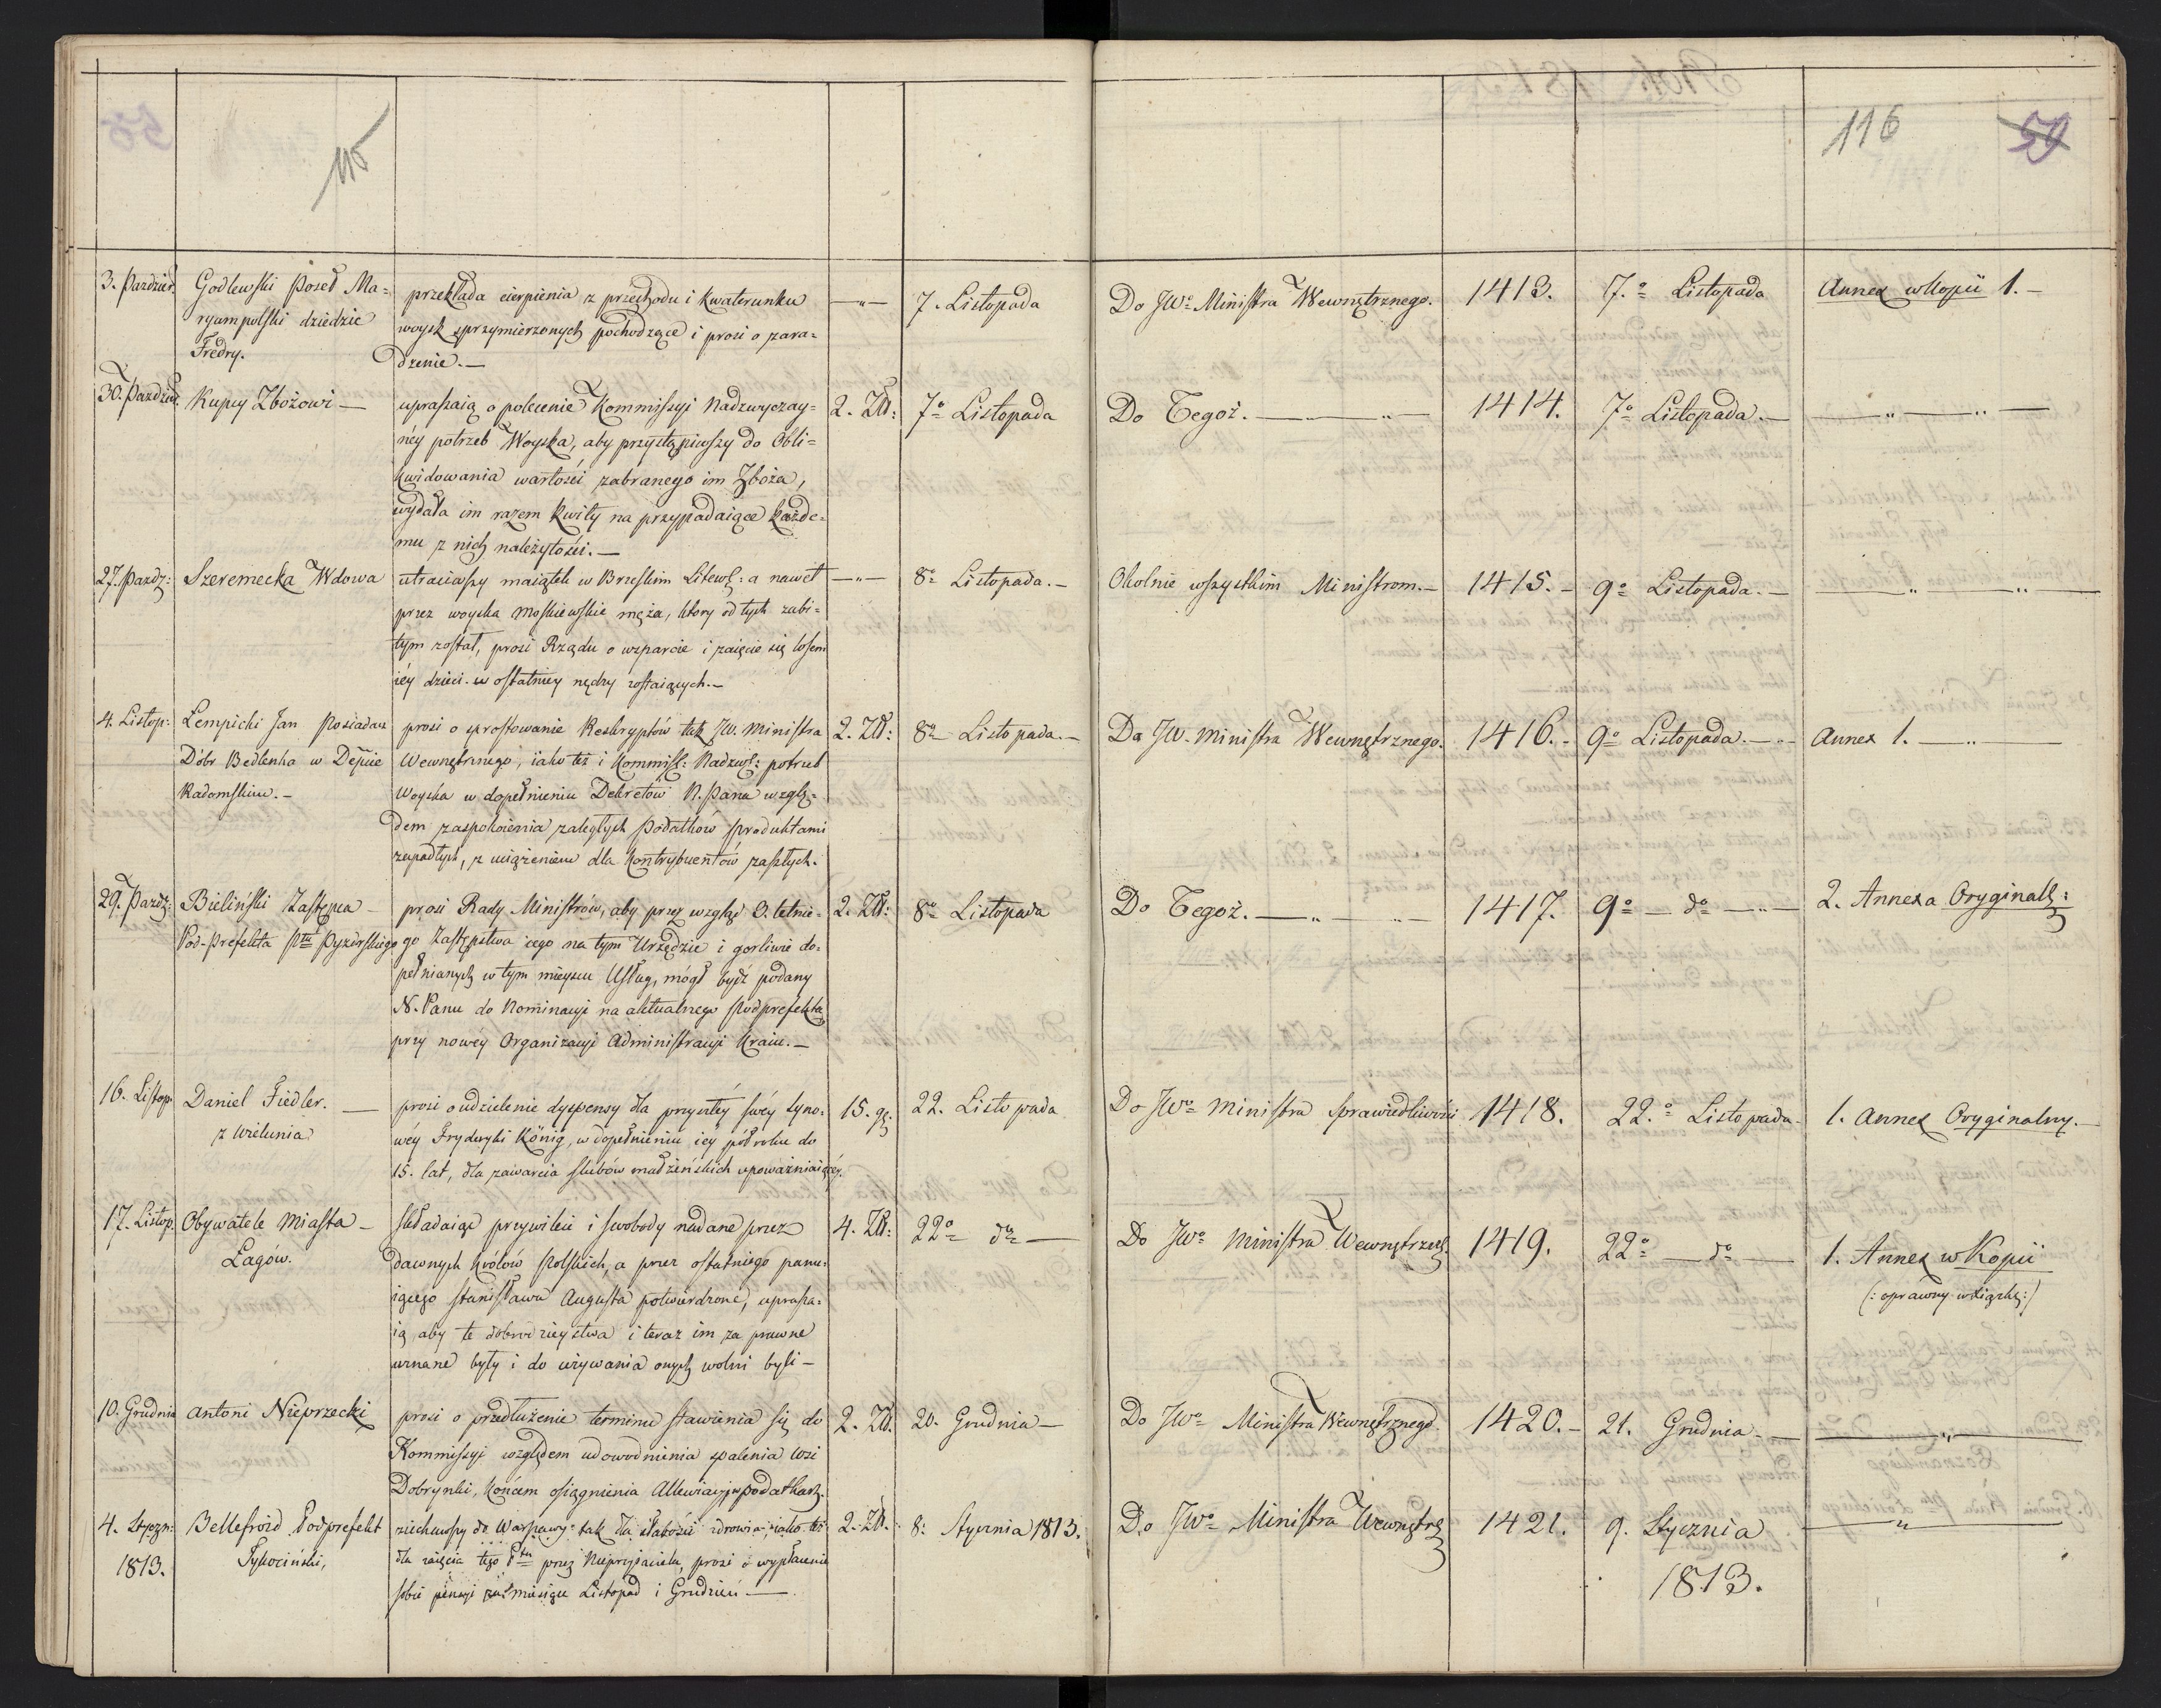 115
116
59
3. Pazdzier.
Godlewski Poseł Ma=
ryampolski dziedzic
Fredry.
przekłada cierpienia z przechodu i kwaterunku
woysk sprzymierzonych pochodzące i prosi o zara=
dzenie. —
— „ —
7. Listopada
Do JWo Ministra Wewnętrznego.
1413.
7.o Listopada
Annex w kopii 1. —
30. Pazdzier.
Kupcy Zbożowi —
upraszaią o polecenie Kommissyi Nadzwyczay=
néy potrzeb Woyska, aby przystąpiwszy do Obli=
kwidowania wartości zabranego im Zboża,
wydała im razem kwity na przypadaiące każde=
mu z nich należytości. —
2. Zł:
7o Listopada
Do Tegoż. — „ —
1414.
7o Listopada. —
— „ — „ —
27. Pazdz:
Szeremecka Wdowa
utraciwszy maiątek w Brzeskim Litews: a nawet
przez woyska Moskiewskie męża, ktory od tych zabi=
tym został, prosi Rządu o wsparcie i zaięcie się losem
iéy dzieci w ostatniey nędzy zostaiących. —
— „ —
8o Listopada. —
Okolnie wszystkim Ministrom. —
1415. —
9o Listopada. —
— „ — „ —
4. Listop:
Lempicki Jan Posiadacz
Dóbr Bedlenka w Depcie
Radomskim. —
prosi o sprostowanie Reskryptów tak JW. Ministra
Wewnętrznego, iako też i Kommiss: Nadzw: potrzeb
Woyska w dopełnieniu Dekretów N. Pana wzglę=
dem zaspokoienia zaległych Podatków produktami
zapadłych, z uciążeniem dla Kontrybuentów zaszłych.
2. Zł:
8o Listopada. —
Do JW. Ministra Wewnętrznego.
1416. —
9o Listopada. — „ —
Annex 1. — „ —
29. Pazdz:
Bieliński Zastępca —
Pod-Prefekta Ptu Pyzdrskiego
prosi Rady Ministrów, aby przez wzgląd 3. letnie=
go Zastępstwa iego na tym Urzędzie i gorliwie do=
pełnianych w tym mieyscu Usług, mógł bydź podany
N. Panu do Nominacyi na aktualnego Podprefekta
przy nowey Organizacyi Administracyi Kraiu. —
2. Zł:
8o Listopada
Do Tegoż. — „ — „ —
1417.
9o — do — „ —
2. Annexa Oryginal:
16. Listop.
Daniel Fiedler. —
z Wielunia
prosi o udzielenie dyspensy dla przyszłéy swéy syno=
wéy Frydryki König, w dopełnieniu iéy półroku do
15. lat, dla zawarcia slubów małżeńskich upoważniaiącéy.
15. gr.
22. Listopada
Do JWo Ministra Sprawiedliwości
1418.
22.o Listopada.
1. Annex Oryginalny. —
17. Listop.
Obywatele Miasta —
Łagów.
składaiąc przywileie i swobody nadane przez
dawnych Królów Polskich, a przez ostatniego panu=
iącego Stanisława Augusta potwierdzone, uprasza=
ią aby te dobrodzieystwa i teraz im za prawne
uznane były i do używania onych wolni byli —
4. Zł:
22o do —
Do JWo Ministra Wewnętrzn.
1419.
22o — do —
1. Annex w Kopii
(: oprawny w Xiążkę :)
10. Grudnia
Antoni Nieprzecki
prosi o przedłużenie terminu stawienia się do
Kommissyi względem udowodnienia spalenia wsi
Dobrynki, końcem osiągnienia Allewiacyi w podatkach.
2. Zł.
20. Grudnia —
Do JWo Ministra Wewnętrznego
1420. —
21. Grudnia —
— „ —
4. Styczn:
1813.
Bellefroid Podprefekt
Tykociński,
ziechawszy do Warszawy tak dla słabości zdrowia, iako też
dla zaięcia tego Ptu przez Nieprzyiaciela, prosi o wypłacenie
sobie pensyi za miesiące Listopad i Grudzień —
2. Zł.
8. Stycznia 1813.
Do JWo Ministra Wewnętrz
1421.
9. Stycznia
1813.
— „ —